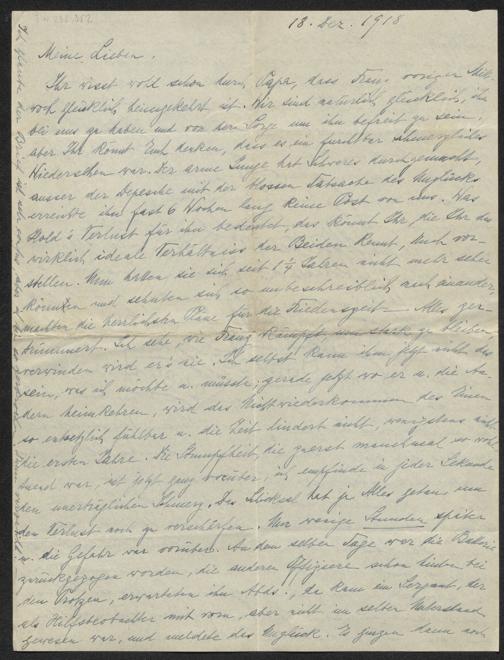 18. Dez. 1918
Meine Lieben.
Ihr wisst wohl schon durch Papa, dass Franz vorigen Mitt-
woch glücklich heimgekehrt ist. Wir sind natürlich glücklich, ihn
bei uns zu haben und von der Sorge um ihn befreit zu sein,
aber Ihr könnt Euch denken, dass es ein furchtbar schmerzliches
Wiedersehen war. Der arme Junge hat Schweres durchgemacht,
ausser der Depesche mit der blossen Tatsache des Unglücks
erreichte ihn fast 6 Wochen lang keine Post von uns. Was
Verlust für ihn bedeutet, das könnt Ihr, die Ihr das
wirklich ideale Verhältniss der Beiden kennt, Euch vor-
stellen. Nun hatten sie sich seit 1 1/4 Jahren nicht mehr sehen
können und sehnten sich so unbeschreiblich nach einander,
machten die herrlichsten Pläne für die Friedenszeit – Alles zer-
trümmert. Ich sehe, wie Franz kämpft um stark zu bleiben
verwinden wird er's nie. Ich selbst kann ihm jetzt nicht das
sein, was ich möchte u. müsste, gerade jetzt wo er u. die An-
dern heimkehren, wird das Nichtwiederkommen des Einen
so entsetzlich fühlbar u. die Zeit lindert nicht, wenigstens nicht
die ersten Jahre. Die Stumpfheit, die zuerst manchmal so wohl
tuend war, ist jetzt ganz vorüber, ich empfinde in jeder Sekunde
den unerträglichen Schmerz. Das Schicksal hat ja Alles getan um
den Verlust noch zu verschärfen. Nur wenige Stunden später
u. die Gefahr war vorüber. An dem selben Tage war die Batterie
zurückgezogen worden, die anderen Offiziere schon hinten bei
den Protzen, erwarteten ihn Abds., da kam ein Sergeant, der
als Hilfsbeobachter mit vorn, aber nicht im selben Unterstand
gewesen war, und meldete das Unglück. Es gingen dann noch
Ich glaube der Brief ist